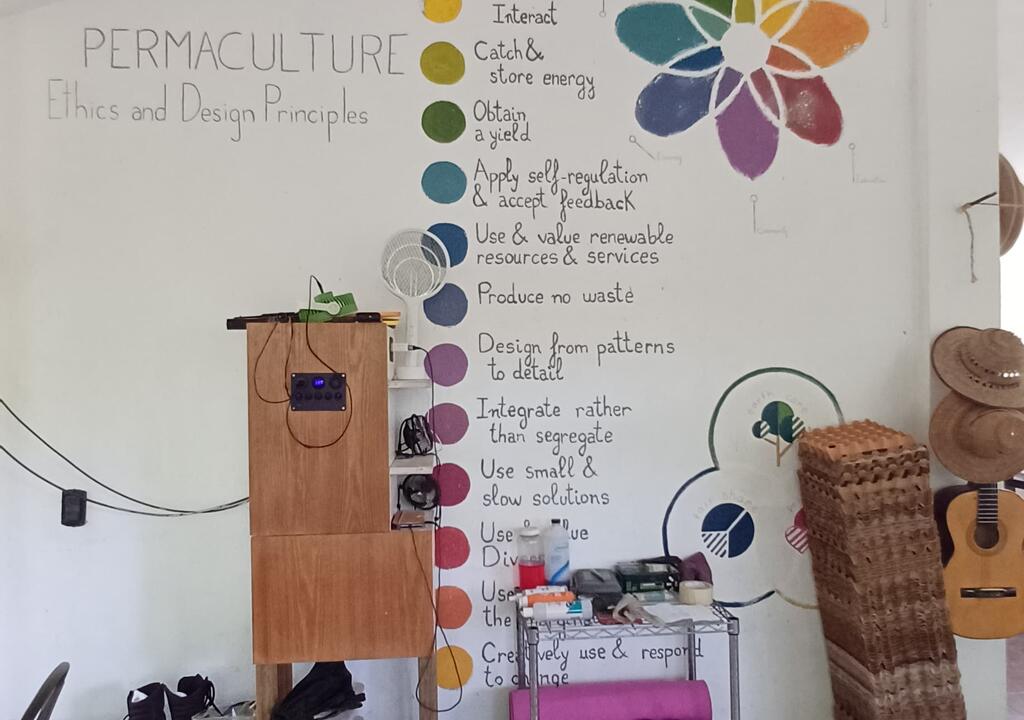 PERMACULTURE
Ethics and Design Principles
Interact
Catch &
store energy
Obtain
a yield
Apply self-regulation
& accept feedback
Use & value renewable
resources & services
Produce no waste
Design from patterns
to detail
Integrate rather
than segregate
Use small &
slow solutions
Use
Use
the
Creatively use & respond
to change
earth care
fair share